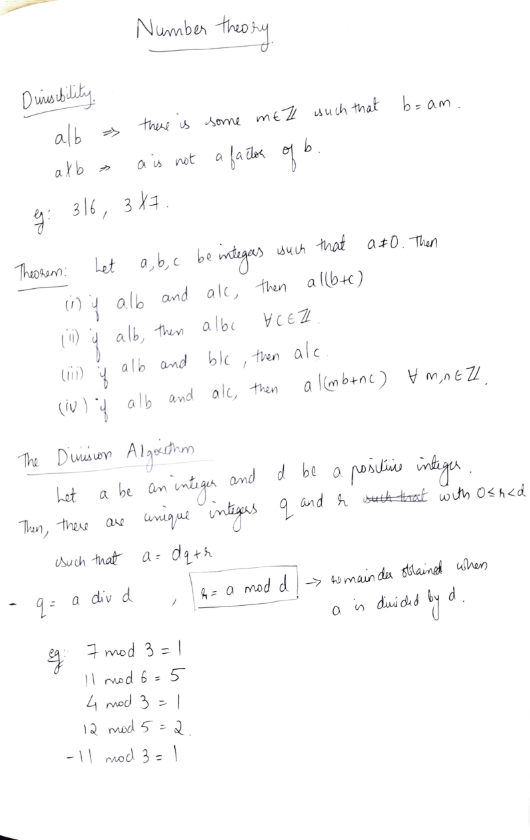 Number theory
Divisibility.
a|b ⇒ there is some m∈ℤ such that b = am.
a∤b ⇒ a is not a factor of b.
eg: 3|6, 3∤7.
Theorem: Let a,b,c be integers such that a≠0. Then
(i) if a|b and a|c, then a|(b+c)
(ii) if a|b, then a|bc ∀c∈ℤ
(iii) if a|b and b|c, then a|c
(iv) if a|b and a|c, then a|(mb+nc) ∀ m,n∈ℤ.
The Division Algorithm
Let a be an integer and d be a positive integer.
Then, there are unique integers q and r such that with 0≤r<d
such that a = dq+r
- q = a div d , r = a mod d → remainder obtained when
a is divided by d.
eg: 7 mod 3 = 1
11 mod 6 = 5
4 mod 3 = 1
12 mod 5 = 2.
-11 mod 3 = 1